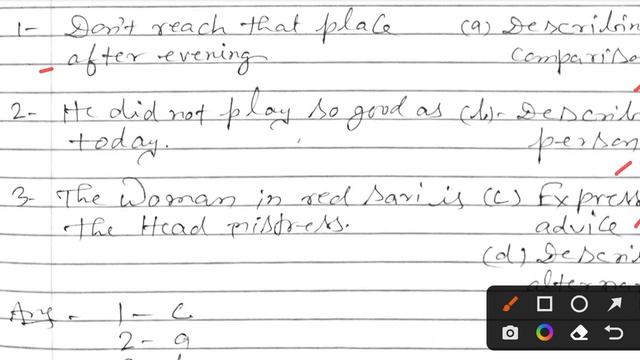 1- Don't reach that place (a) Describin
after evening Compariso
2- He did not play so good as (b)- Describ
today. person
3- The Woman in red sari is (c) Express
the Head mistress. advice
(d) Describ
Ans - 1 - c
2 - a